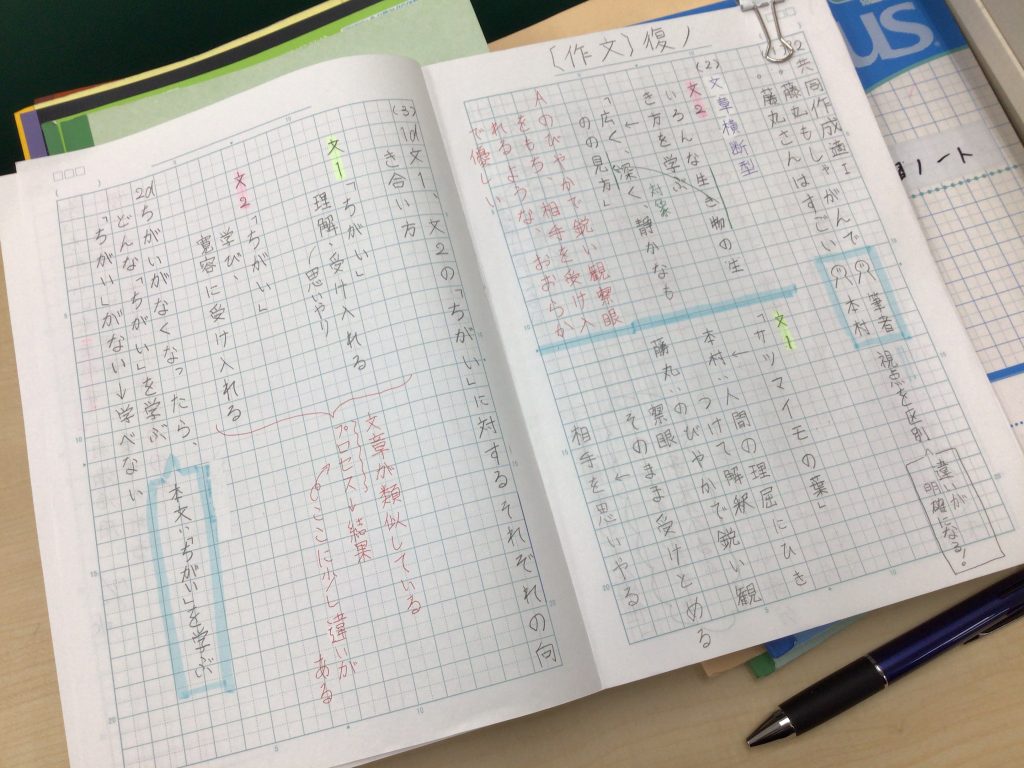 〔作文〕復ノ
共同作成適I
・藤丸もしゃがんで
・藤丸さんはすごい
筆者
本村
視点を区別
違いが
明確になる!
(2)文章横断型
文2
いろんな生き物の生
き方を学び
対象
「広く、深く、静かなも
のの見方」
Aのびやかで鋭い観察眼
をもち、相手をお受け入
れるような、おおらか
で優しい
文1
「サツマイモの葉」
本村‥人間の理屈にひき
つけて解釈
藤丸‥のびやかで鋭い観
察眼
そのまま受けとめる
相手を思いやる
(3)id文1、文2の「ちがい」に対するそれぞれの向
き合い方
文1
「ちがい」
理解、受け入れる
思いやり
文2
「ちがい」
学び、
寛容に受け入れる
文章が類似している
プロセス→結果
ここに少し違いが
ある
2dちがいがなくなったら、
どんな「ちがい」を学ぶ
「ちがい」がない→学べない
本文‥「ちがい」を学ぶ
US
ノート